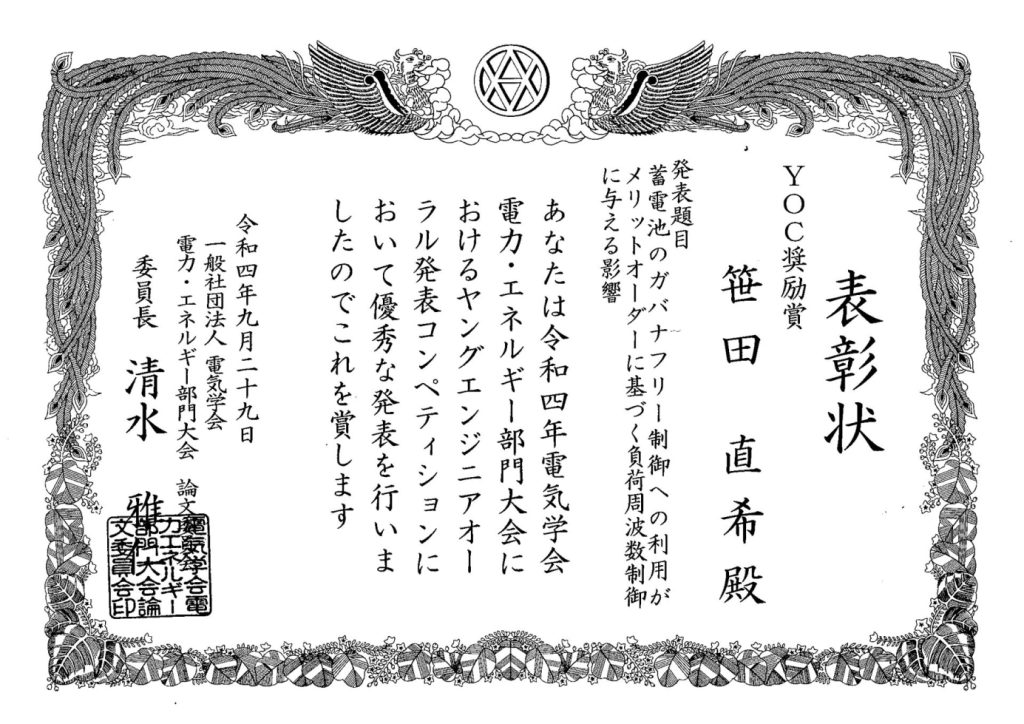 表彰状
YOC奨励賞
笹田 直希 殿
発表題目
蓄電池のガバナフリー制御への利用が
メリットオーダーに基づく負荷周波数制御
に与える影響
あなたは令和四年電気学会
電力・エネルギー部門大会に
おけるヤングエンジニアオー
ラル発表コンペティションに
おいて優秀な発表を行いま
したのでこれを賞します
令和四年九月二十九日
一般社団法人 電気学会
電力・エネルギー部門大会 論文
委員長 清水 雅
電気学会電
力エネルギー
部門大会論
文委員会印